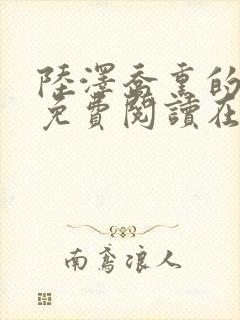 陸澤喬熏的
免費閱讀在
南鳶浪人